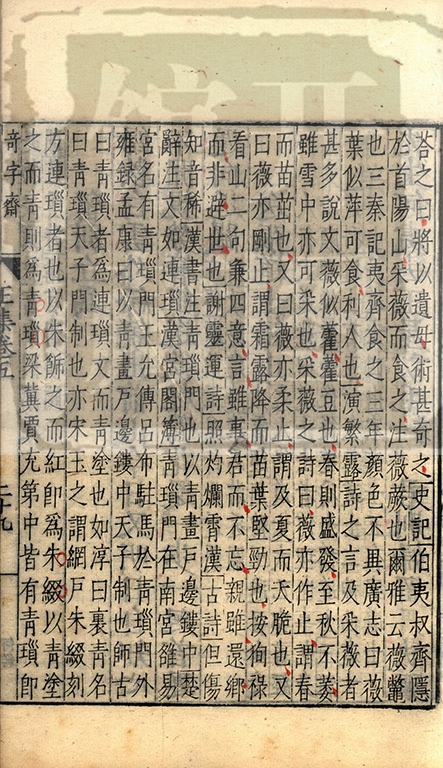 荅之曰將以遺母術甚奇之史記伯夷叔齊隱
於首陽山采薇而食之注薇蕨也爾雅云薇虌
也三秦記夷齊食之三年顔色不異廣志曰薇
葉似萍可食利人也演繁露詩之言及采薇者
甚多說文薇似藿藿豆也春則盛發至秋不萎
雖雪中亦可采也采薇之詩曰薇亦作止謂春
而苗茁也又曰薇亦柔止謂及夏而夭脆也又
曰薇亦剛止謂霜露降而苗葉堅勁也按徇祿
看山二句兼四意言雖裏君而不忘親雖還鄉
而非避世也謝靈運詩照灼爛霄漢古詩但傷
知音稀漢書注青瑣門也以青畫戶邊鏤中楚
辭注文如連瑣漢宮閣簿青瑣門在南宮雒易
宮名有青瑣門王允傳呂布駐馬於青瑣門外
雍録孟康曰以青畫戶邊鏤中天子制也師古
曰青瑣者爲連瑣文而青塗也如淳曰裏青名
曰青瑣天子門制也亦宋玉之謂網戶朱綴刻
方連瑣者也以朱飾之而紅卽爲朱綴以青塗
之而青則爲青瑣梁冀賈充第中皆有青瑣卽
奇字齋
五